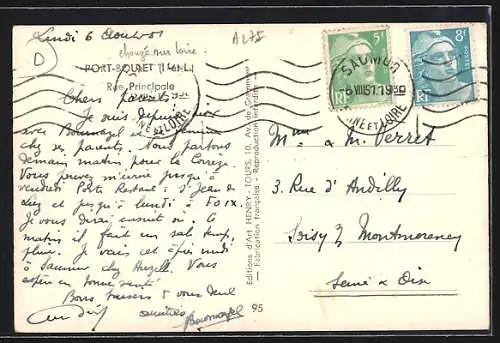 Lundi 6 Août 51
A 275
D
PORT-BOULET (I.-&-L.)
Rue Principale
5f
8f
RF
RF
SAUMUR
6 VIII 51
MAINE ET LOIRE
Chers parents
Je suis depuis hier
avec Bournazel et
chez ses parents. Nous partons
demain matin pour la Corrèze
Vous pouvez m'écrire jusqu'à
vendredi Poste Restante : St Jean de
Luz et jusqu'à lundi à Foix.
Je vous dirai ensuite où. Ce
matin il fait un sale temps,
pluie. Je vais cet après midi
à Saumur chez
Vous
en bonne santé
Bons baisers à vous deux
amitiés
Bournazel
Editions d'Art HENRY - TOURS, 10, Av. de Grammont
— Fabrication française - Reproduction interdite —
95
Mme & M. Verret
3 Rue d'Andilly
Soisy s/ Montmorency
Seine & Oise